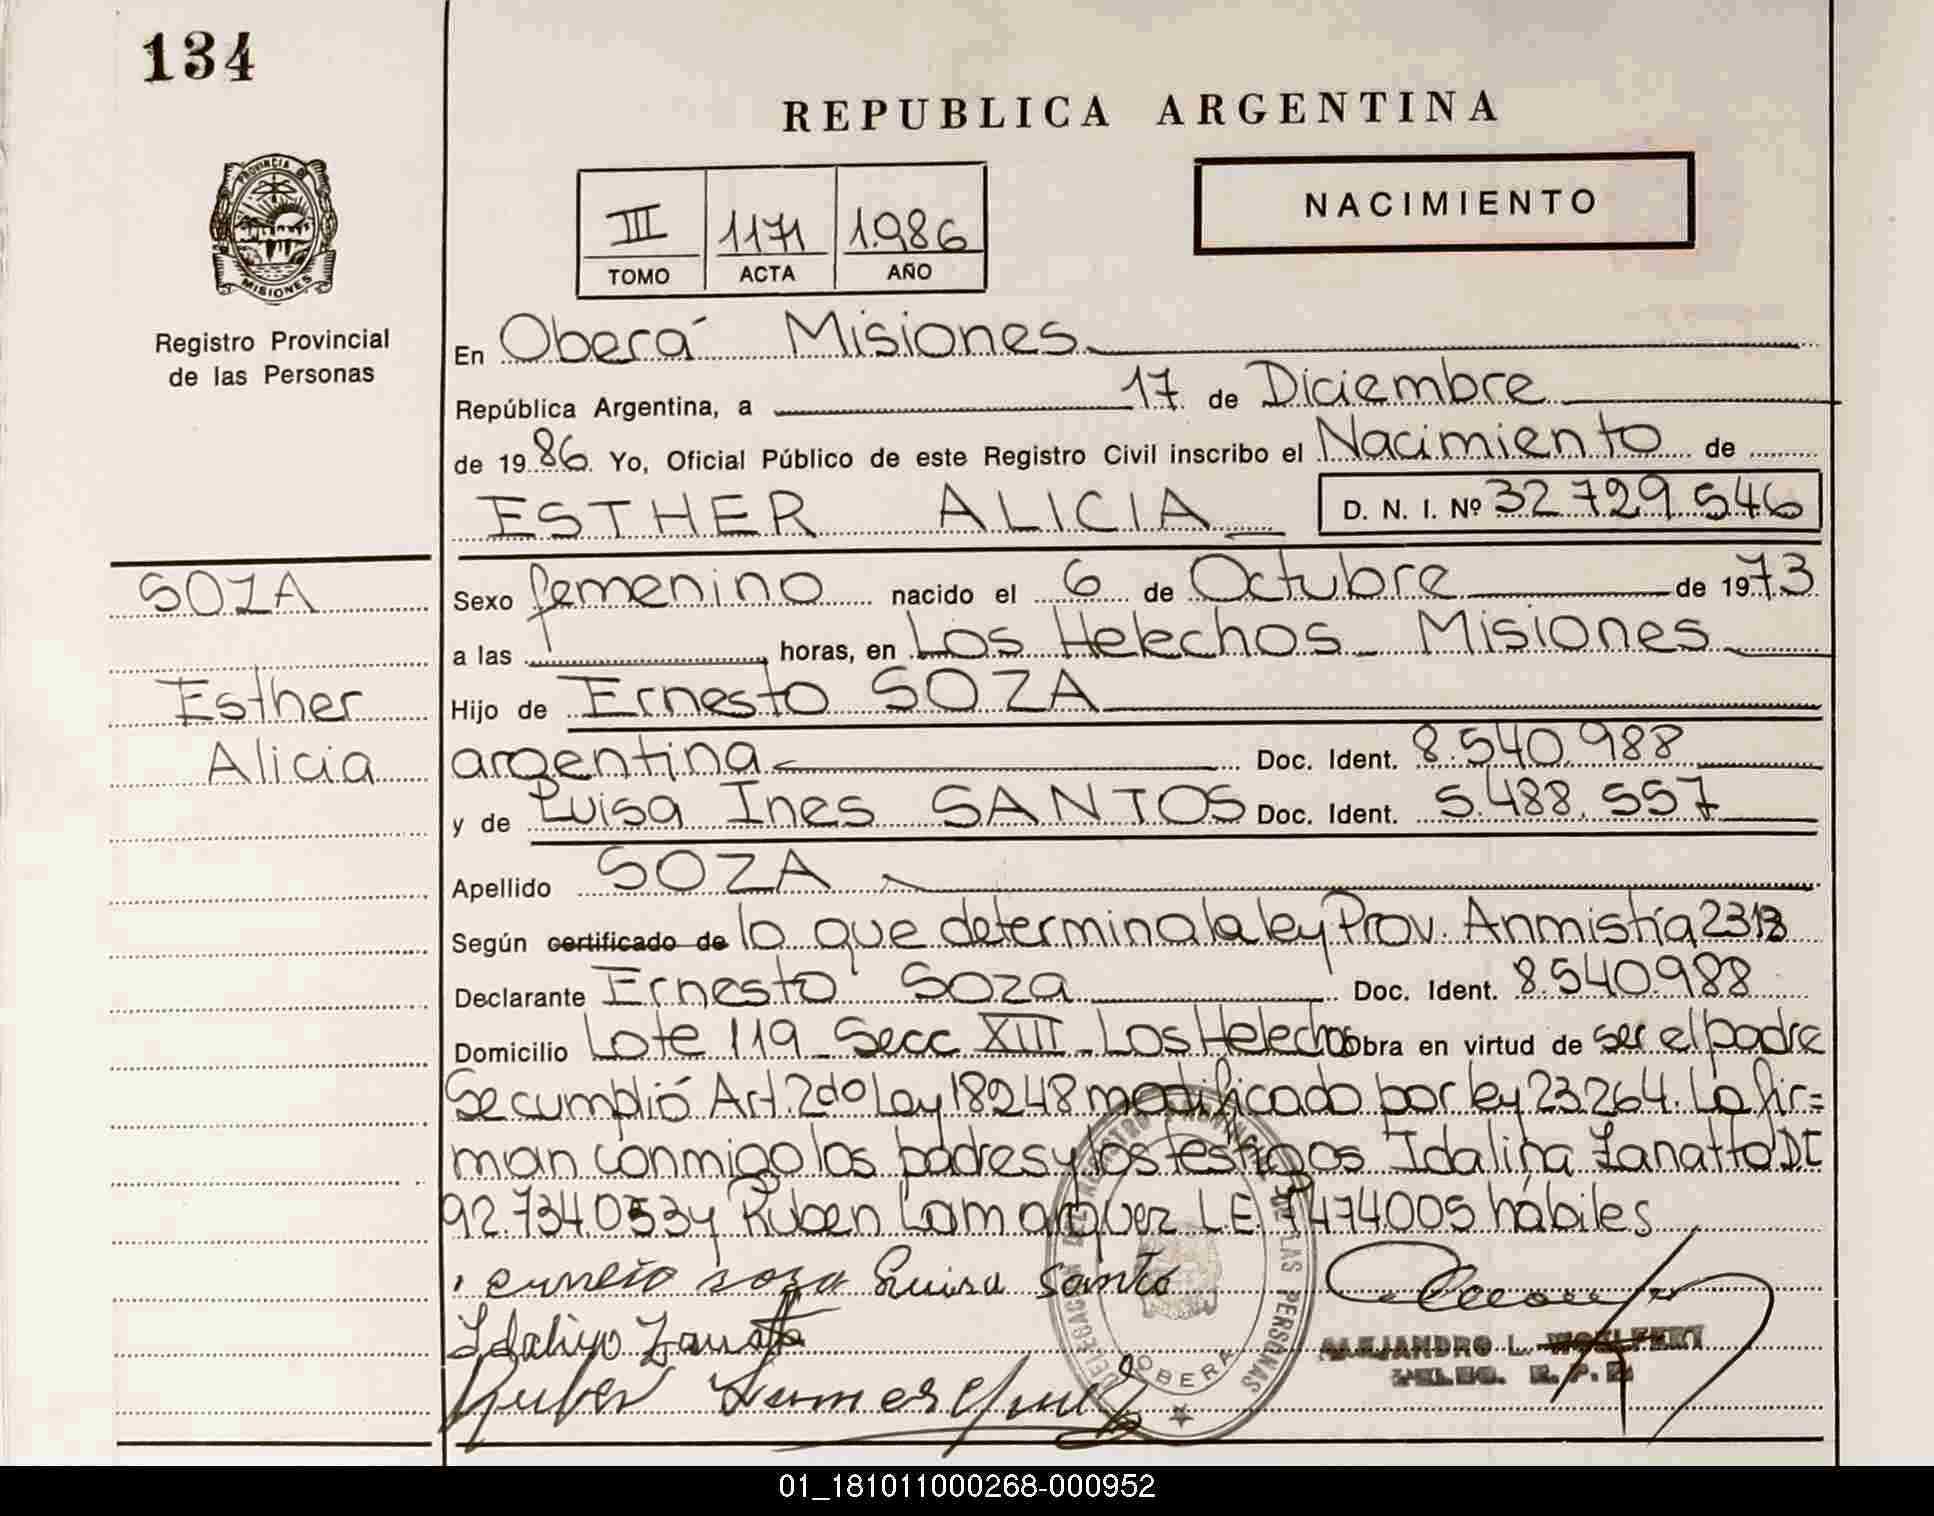 134
REPUBLICA ARGENTINA
PROVINCIA DE
MISIONES
Registro Provincial
de las Personas
III 1171 1.986
TOMO ACTA AÑO
NACIMIENTO
En Oberá Misiones
República Argentina, a 17 de Diciembre
de 1986. Yo, Oficial Público de este Registro Civil inscribo el Nacimiento de
ESTHER ALICIA D. N. I. Nº 32.729.546
SOZA
Esther
Alicia
Sexo femenino nacido el 6 de Octubre de 1973
a las horas, en Los Helechos - Misiones
Hijo de Ernesto SOZA
argentina Doc. Ident. 8.540.988
y de Luisa Ines SANTOS Doc. Ident. 5.488.557
Apellido SOZA
Según certificado de lo que determina la ley Prov. Anmistía 2313
Declarante Ernesto Soza Doc. Ident. 8.540.988
Domicilio Lote 119 - Secc XIII - Los Helechos Obra en virtud de ser el padre
Se cumplió Art. 2do Ley 18248 modificado por ley 23.264. La fir=
man conmigo los padres y los testigos Idalina Zanatto DI
92.734.053 y Ruben Lamarquez L.E. 7474005 hábiles
ernesto soza Luisa Santo
Idalino Zanatto
Ruben Lamarquez
DELEGACION DEL REGISTRO PROVINCIAL DE LAS PERSONAS
OBERA
ALEJANDRO L. WOELFERT
DELEG. R. P. P.
01_181011000268-000952